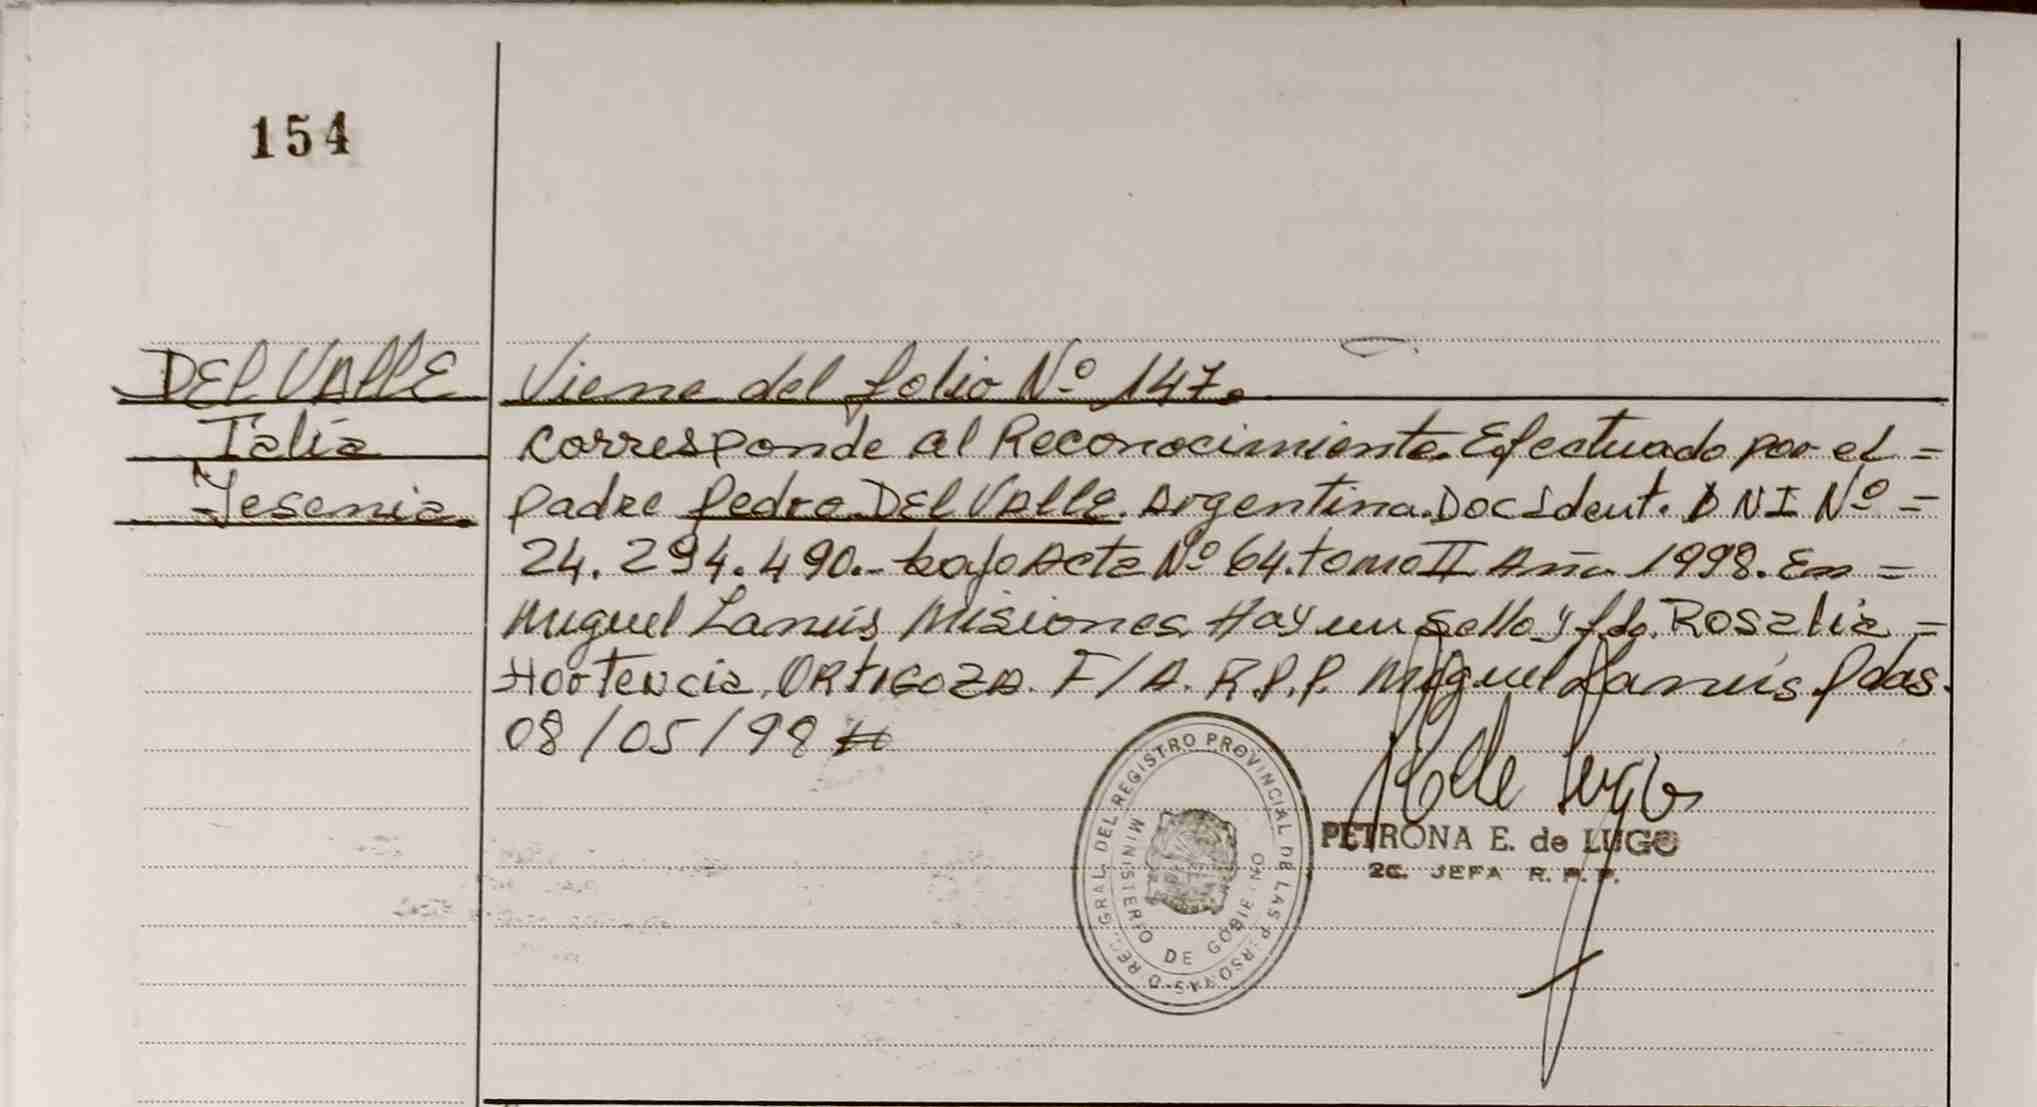 154
DEL VALLE
Talía
Yesenia.
Viene del folio Nº 147.
Corresponde al Reconocimiento. Efectuado por el =
Padre Pedro DEL VALLE. Argentina. Doc Ident. DNI Nº =
24.294.490.- bajo Acta Nº 64. tomo II Año 1998. En =
Miguel Lanús, Misiones. Hay un sello y fdo. Rosalia =
Hortencia, ORTIGOZA. F/A. R.P.P. Miguel Lanús. Pdas.
08/05/98
DEL REGISTRO PROVINCIAL DE LAS PERSONAS
MINISTERIO DE GOBIERNO
PETRONA E. de LUGO
2C. JEFA R. P. P.